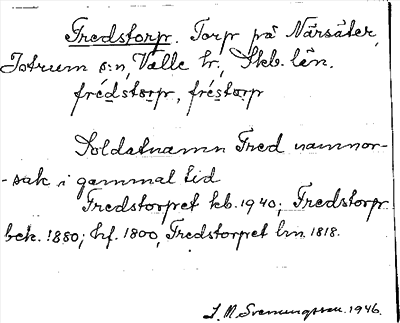 Fredstorp. Torp på Närsäter,
Jotrum s:n, Valle hr, Skb. län.
frédstorp, fréstorp
Soldatnamn Fred namnor-
-sak i gammal tid
Fredstorpet kb. 1940; Fredstorp
bek. 1880; hf. 1800, Fredstorpet hm. 1818.
S. M. Svenungsson. 1946.